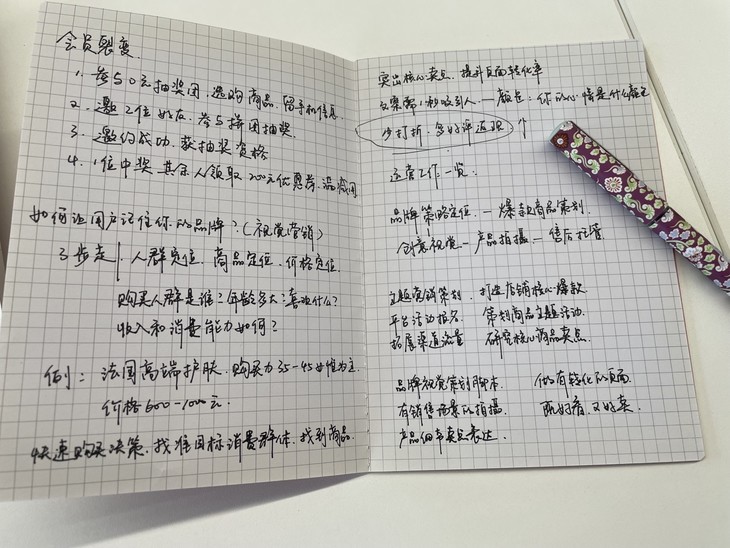 会员裂变
1. 参与0元抽奖团,选购商品,留手机信息
2. 邀2位好友,参与拼团抽奖.
3. 邀约成功,获抽奖资格
4. 1位中奖 其余人领取200元优惠券,满减用
如何让用户记住你的品牌?(视觉营销)
3步走 人群定位,商品定位,价格定位.
购买人群是谁?年龄多大?喜欢什么?
收入和消费能力如何?
例:法国高端护肤,购买力35-45女性为主.
价格600-1000元.
快速购买决策,找准目标消费群体,找到商品.
突出核心卖点,提升页面转化率
文案第1秒吸引人—颜色:你的心情是什么颜色
少打折,多好评返现
运营工作一览:
品牌策略定位—爆款商品策划.
创意视觉—产品拍摄—售后托管.
主题营销策划. 打造店铺核心爆款
平台活动报名. 策划商品主题活动.
拓展渠道流量 研究核心商品卖点.
品牌视觉策划脚本. 做有转化的页面
有销售场景的拍摄. 既好看,又好卖.
产品细节卖点表达.